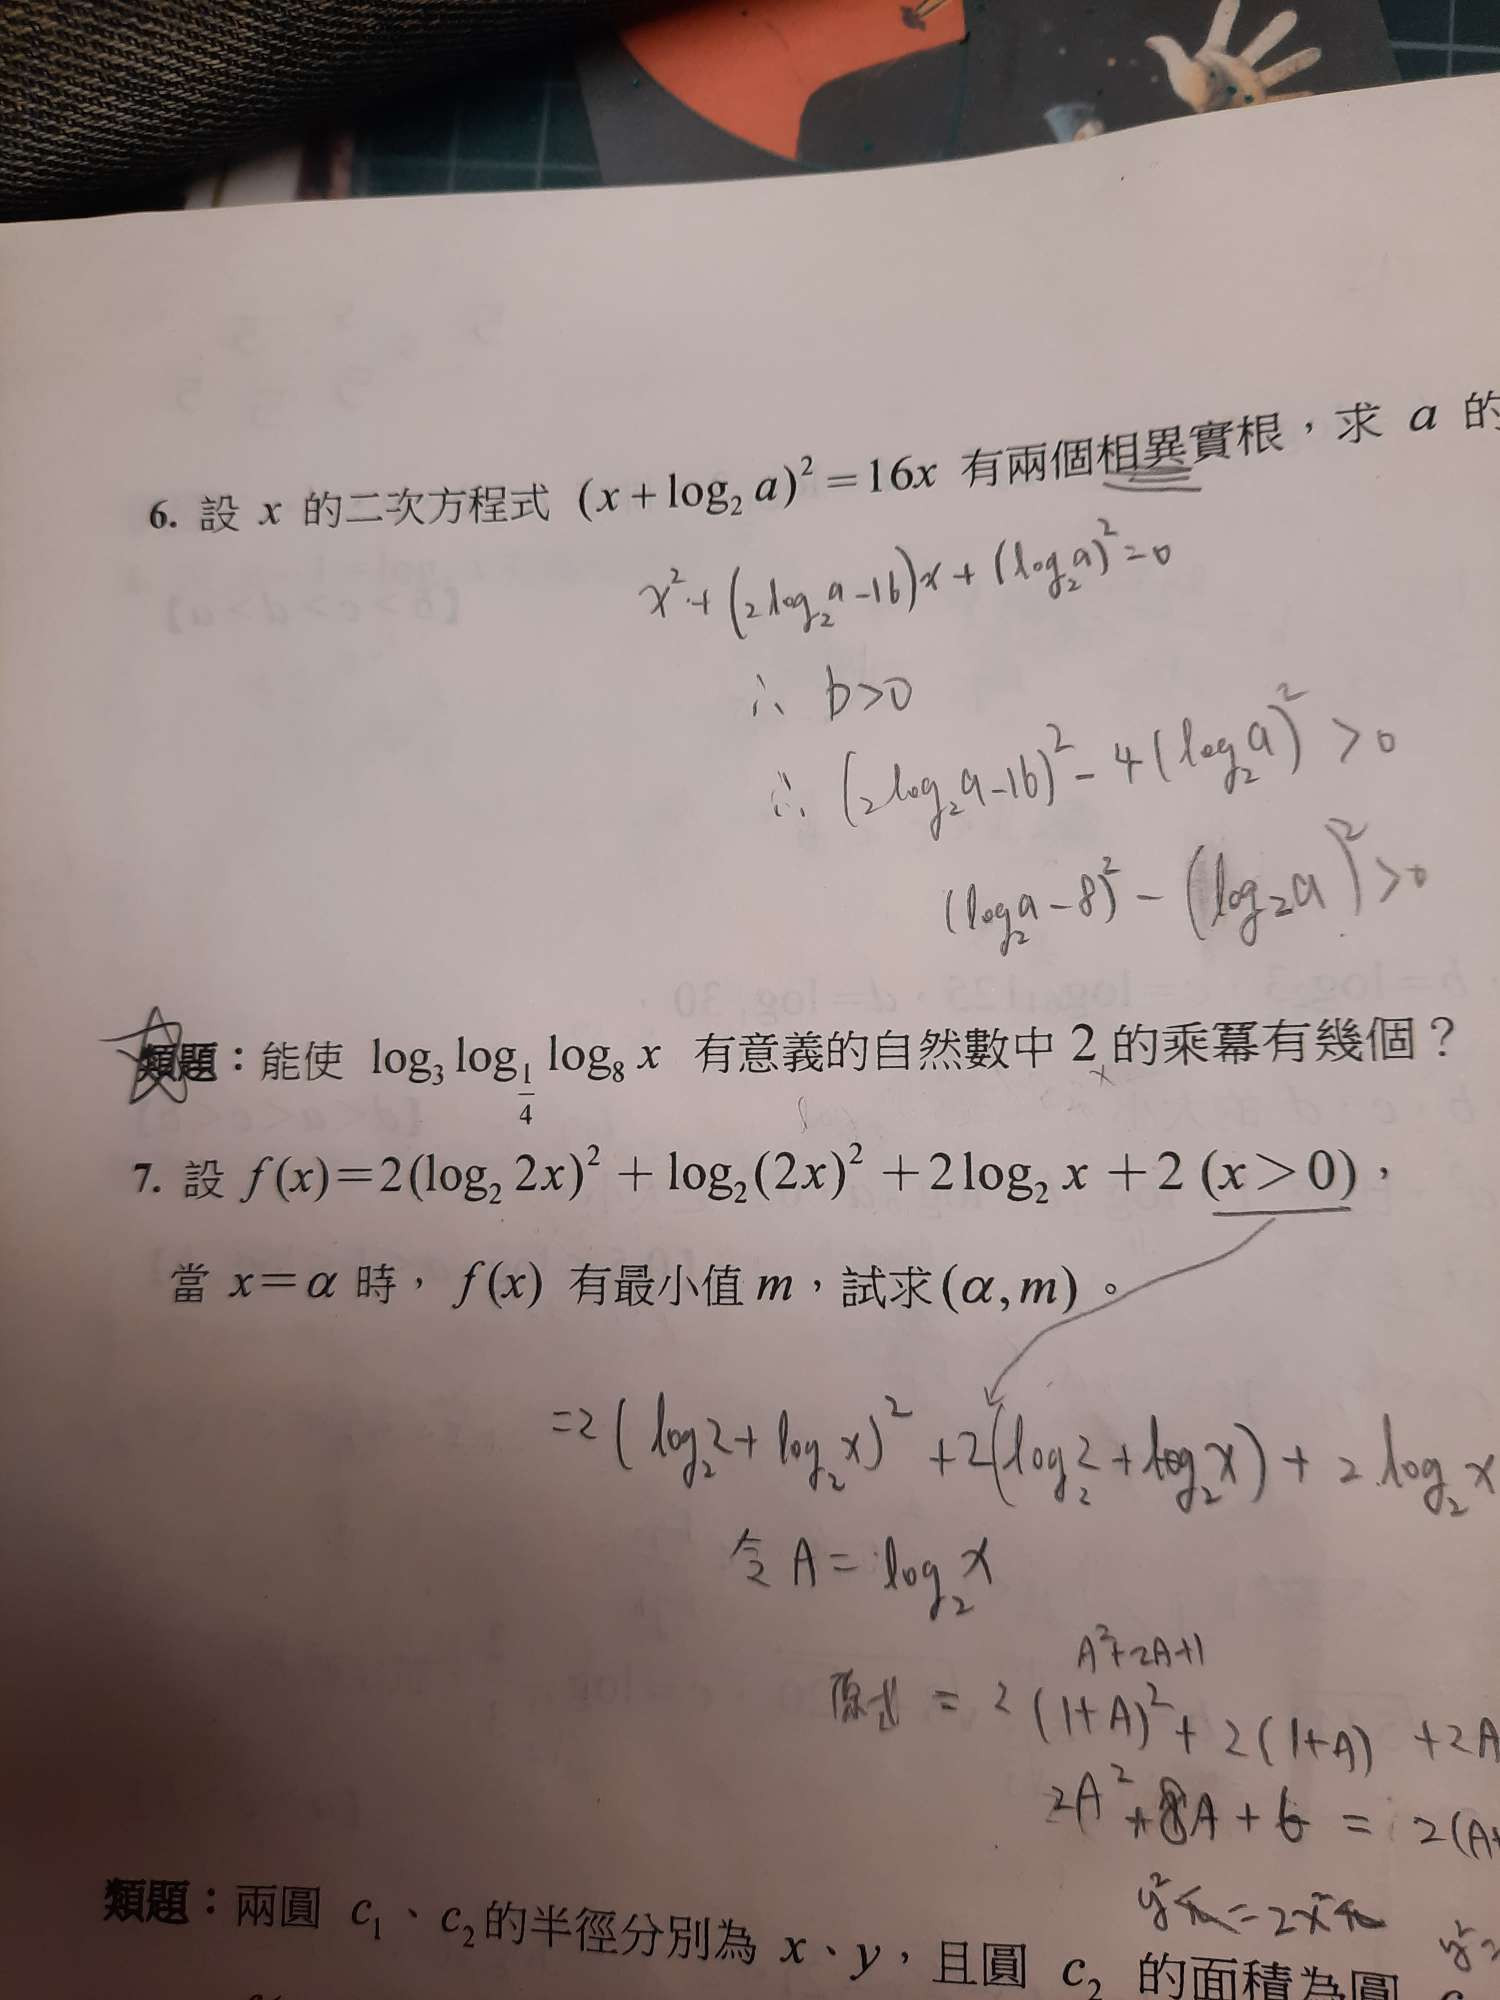 6. 設 x 的二次方程式 (x+log₂ a)²=16x 有兩個相異實根，求 a 的
x²+(2log₂a-16)x+(log₂a)²=0
∴ D>0
∴ (2log₂a-16)²-4(log₂a)²>0
(log₂a-8)²-(log₂a)²>0
類題：能使 log₃ log_{1/4} log₈ x 有意義的自然數中 2 的乘冪有幾個？
x
7. 設 f(x)=2(log₂ 2x)²+log₂(2x)²+2log₂ x+2 (x>0)，
當 x=α 時， f(x) 有最小值 m，試求(α,m)。
=2(log₂2+log₂x)²+2(log₂2+log₂x)+2log₂x
令 A=log₂x
A²+2A+1
原式 = 2(1+A)²+2(1+A)+2A
2A²+8A+6=2(A+
y²π=2x²π
類題：兩圓 c₁、c₂的半徑分別為 x、y，且圓 c₂ 的面積為圓